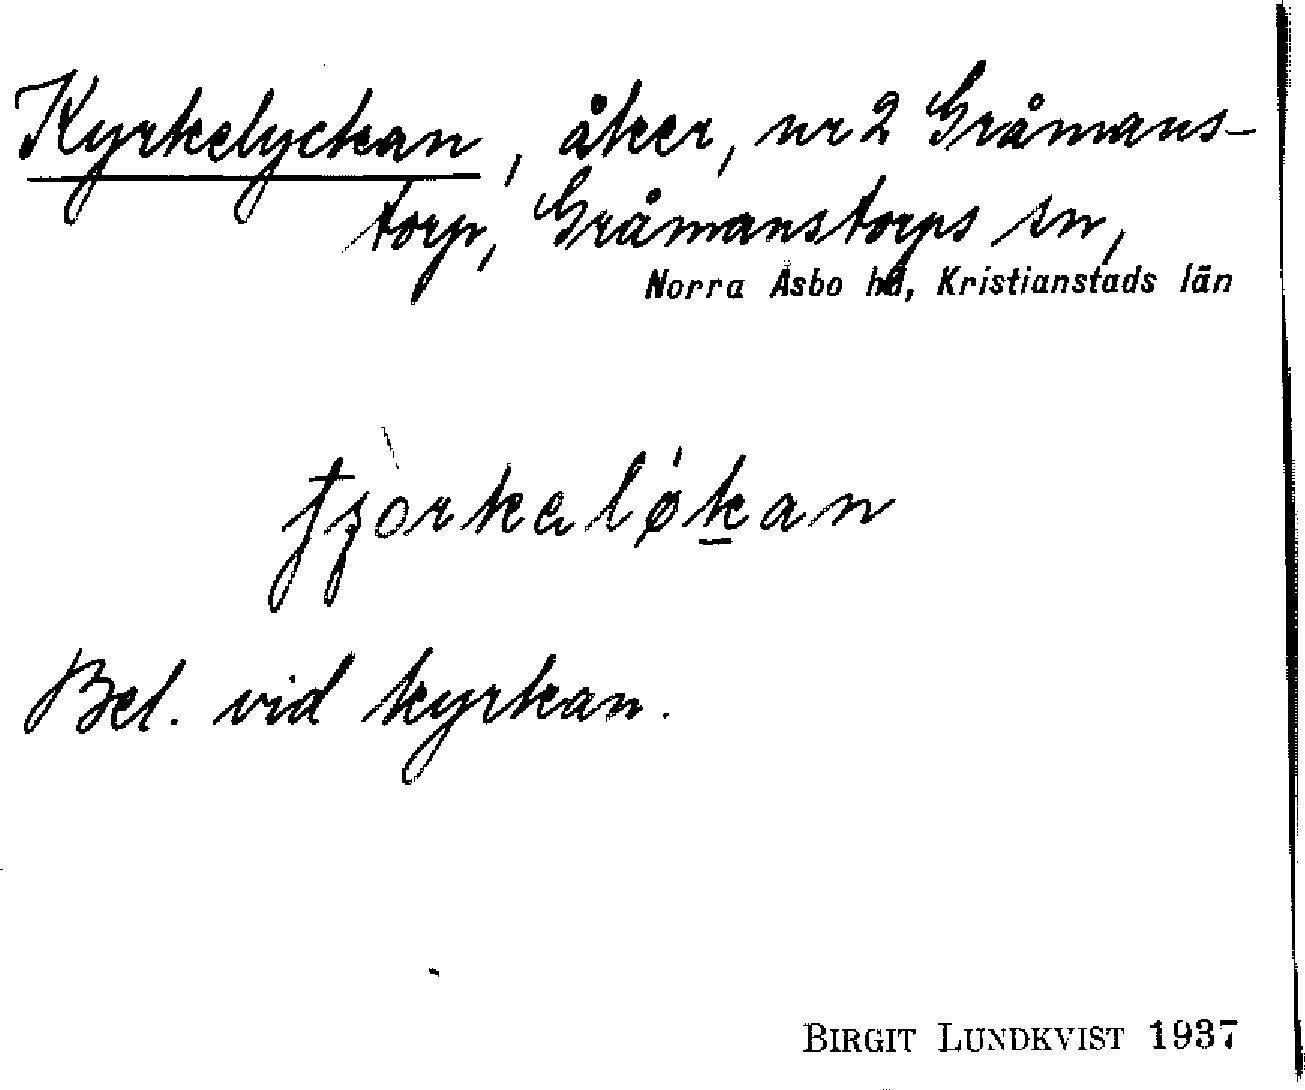 Kyrkelyckan, åker, nr 2 Gråmans-
torp, Gråmanstorps sn,
Norra Åsbo hd, Kristianstads län
Bel. vid kyrkan.
BIRGIT LUNDKVIST 1937